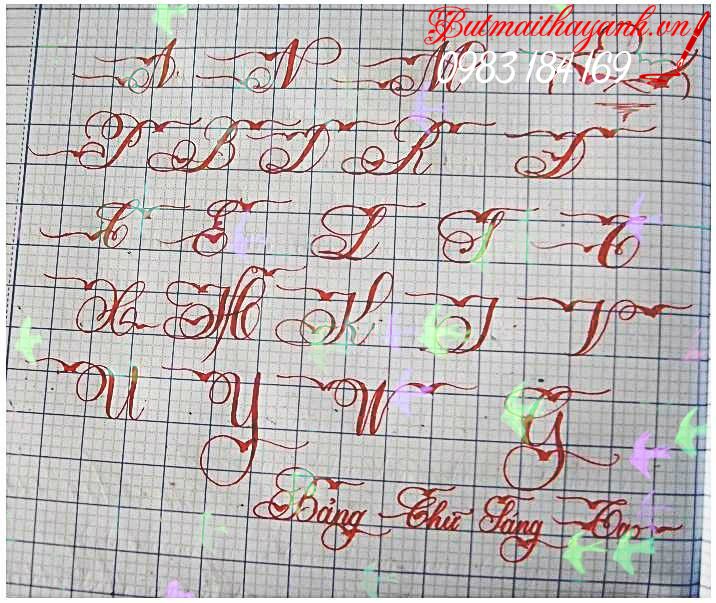 Butmaithayank.vn
0983 184 169
A N M
P B D R
C E L S T
X H K I V
U Y W G
Bảng Chữ Sáng Tạo